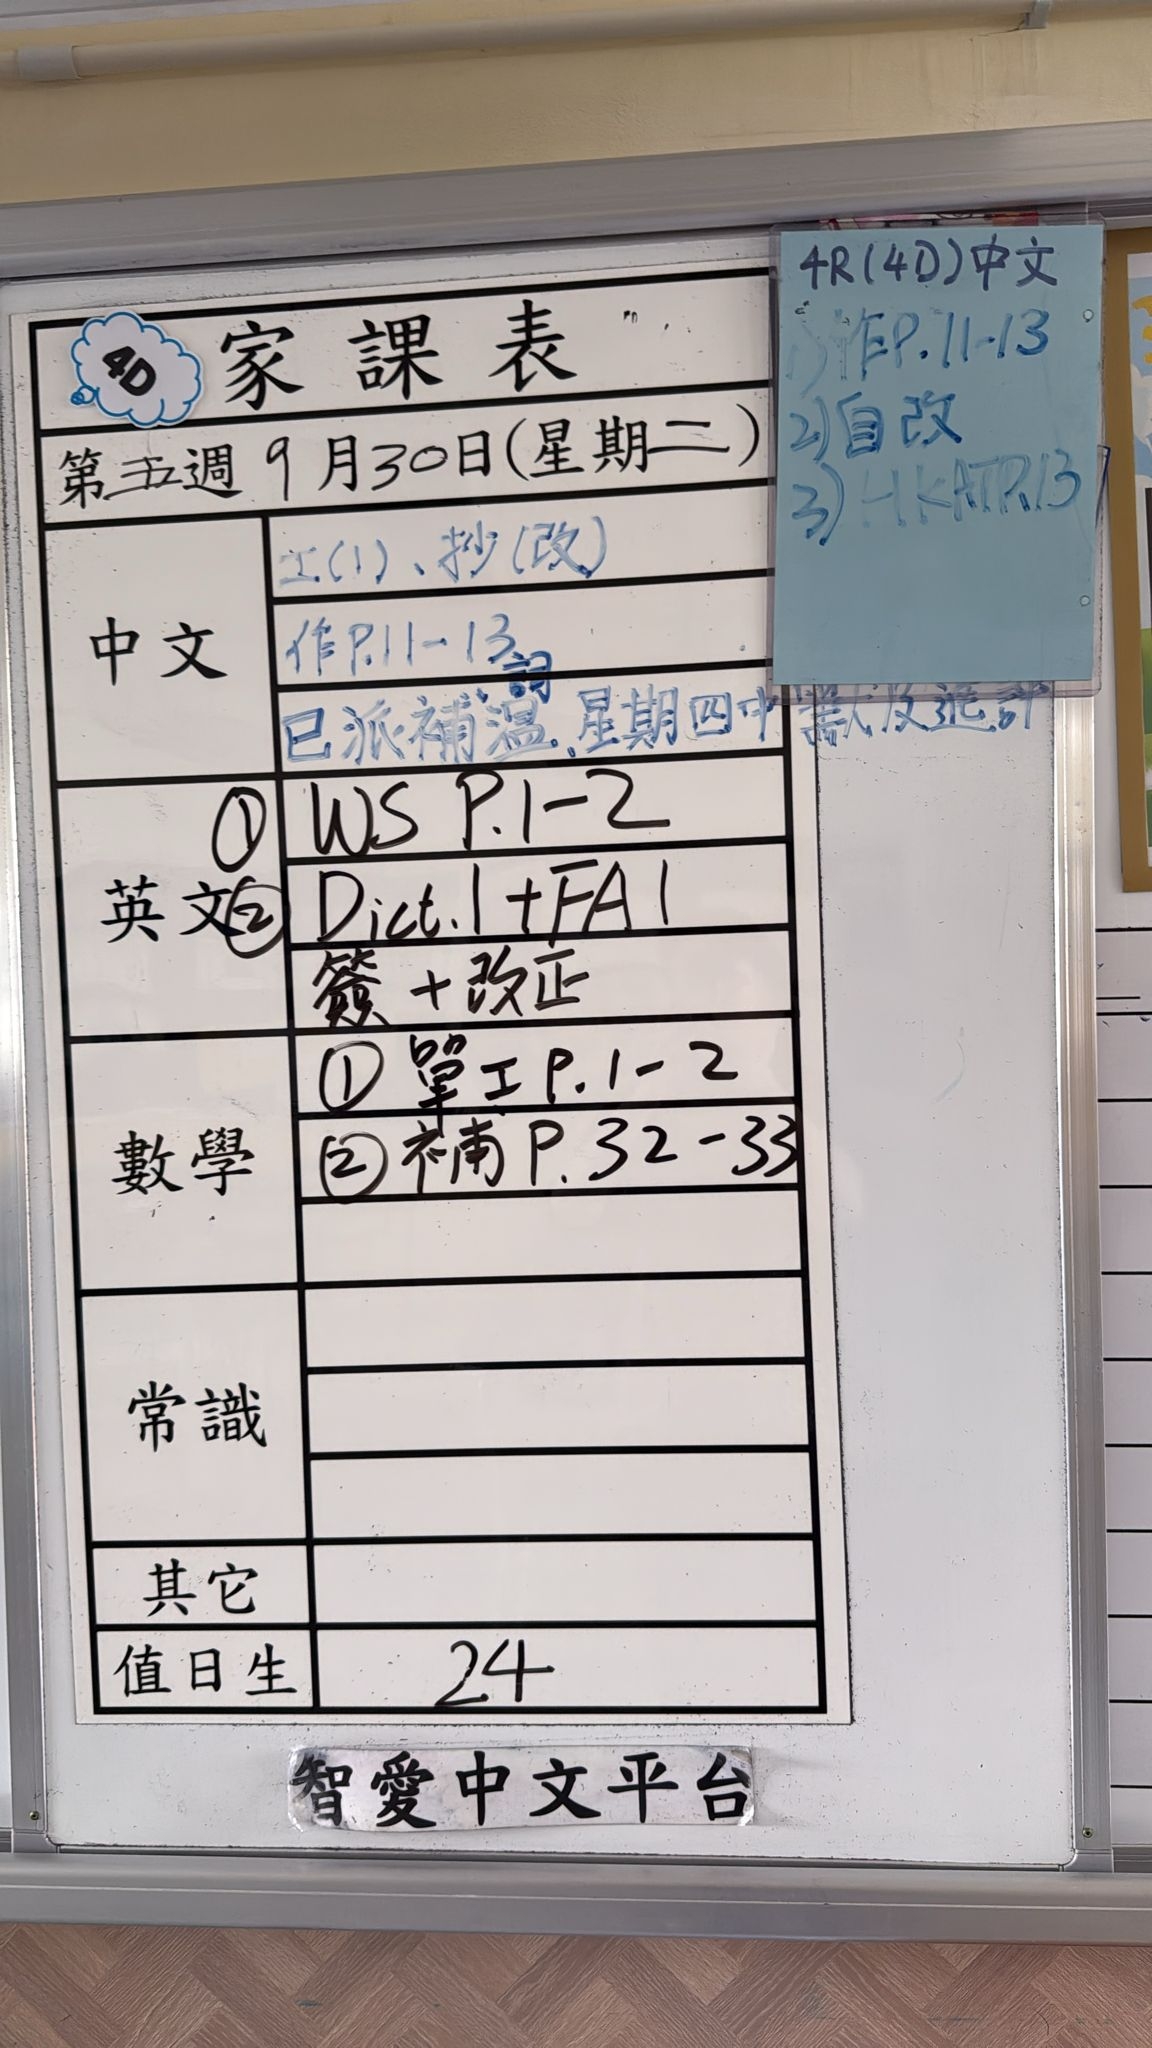 4D
家課表
第五週 9月30日(星期二)
中文
工(1)、抄(改)
作P.11-13
詞
已派補溫、星期四中默及進評
英文
① WS P.1-2
② Dict.1+FA1
簽+改正
數學
① 單工P.1-2
② 補P.32-33
常識
其它
值日生
24
智愛中文平台
4R(4D)中文
1)作P.11-13
2)自改
3)HKATP.13